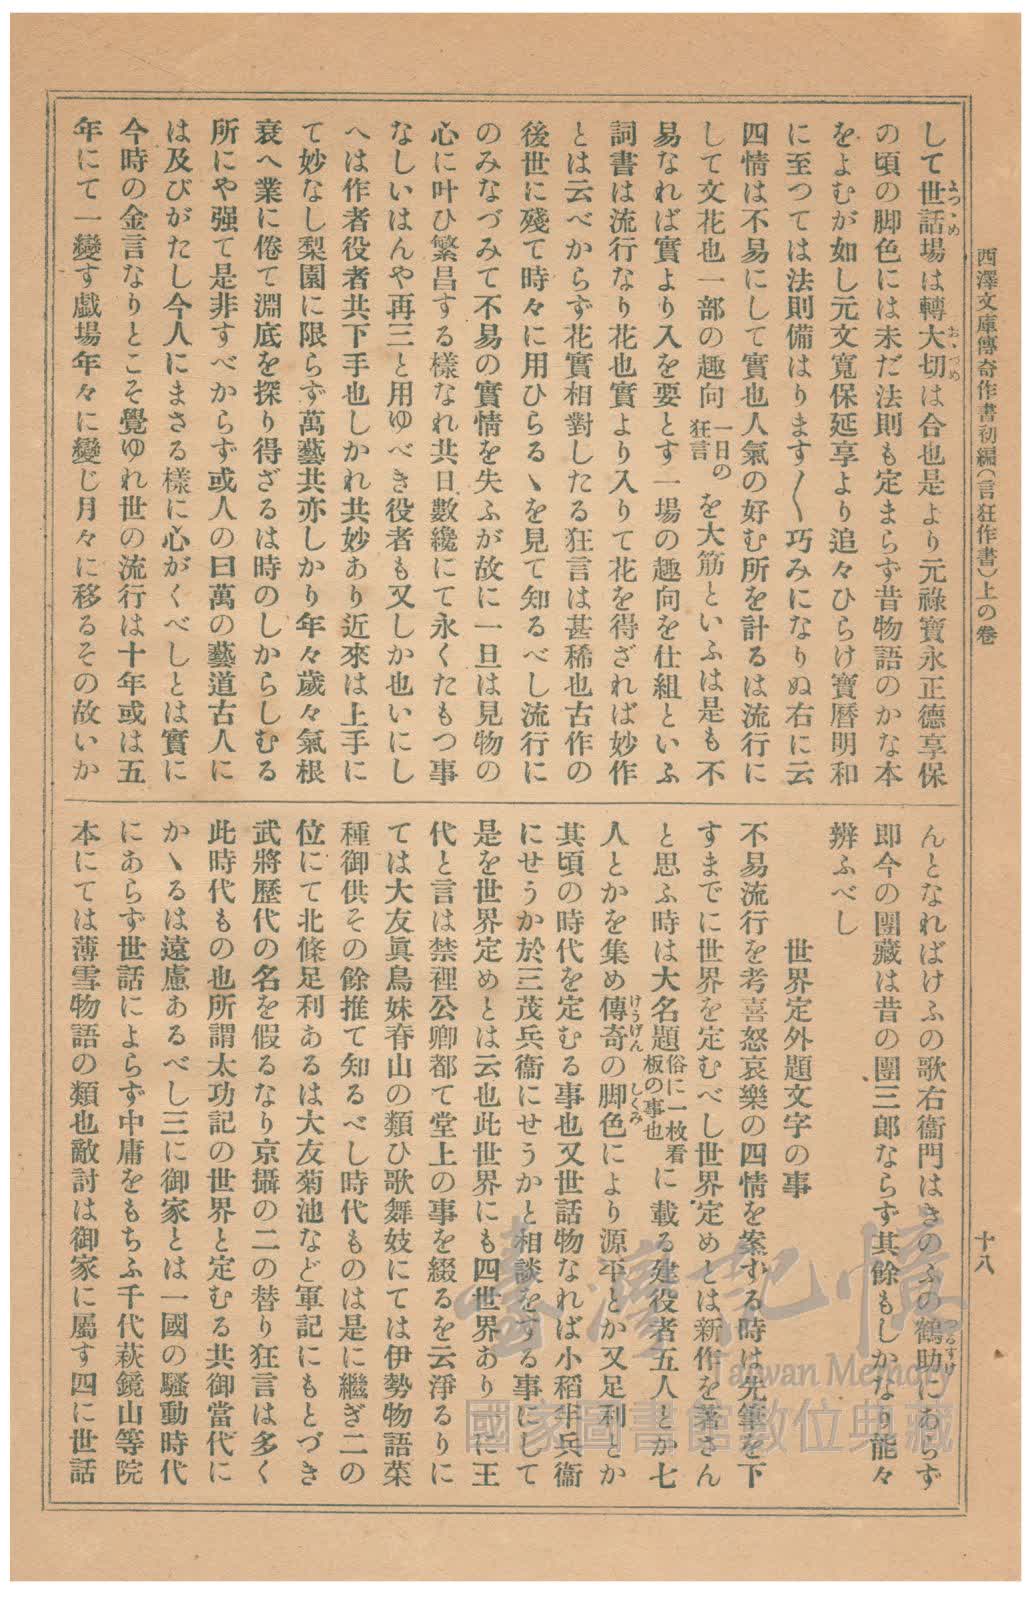 西澤文庫傳奇作書初編(言狂作書)上の卷
十八
して世話場は轉大切は合也是より元祿寶永正德享保
の頃の脚色には未だ法則も定まらず昔物語のかな本
をよむが如し元文寬保延享より追々ひらけ寶曆明和
に至つては法則備はります〱巧みになりぬ右に云
四情は不易にして實也人氣の好む所を計るは流行に
して文花也一部の趣向一日の狂言を大筋といふは是も不
易なれば實より入を要とす一場の趣向を仕組といふ
詞書は流行なり花也實より入りて花を得ざれば妙作
とは云べからず花實相對したる狂言は甚稀也古作の
後世に殘て時々に用ひらるゝを見て知るべし流行に
のみなづみて不易の實情を失ふが故に一旦は見物の
心に叶ひ繁昌する樣なれ共日數纔にて永くたもつ事
なしいはんや再三と用ゆべき役者も又しか也いにし
へは作者役者共下手也しかれ共妙あり近來は上手に
て妙なし梨園に限らず萬藝共亦しかり年々歲々氣根
衰へ業に倦て淵底を探り得ざるは時のしからしむる
所にや强て是非すべからず或人の曰萬の藝道古人に
は及びがたし今人にまさる樣に心がくべしとは實に
今時の金言なりとこそ覺ゆれ世の流行は十年或は五
年にて一變す戲場年々に變じ月々に移るその故いか
んとなればけふの歌右衞門はきのふの鶴助にあらず
卽今の團藏は昔の團三郎ならず其餘もしかなり能々
辨ふべし
世界定外題文字の事
不易流行を考喜怒哀樂の四情を案ずる時は先筆を下
すまでに世界を定むべし世界定めとは新作を著さん
と思ふ時は大名題俗に一枚看板の事也に載る建役者五人とか七
人とかを集め傳奇の脚色により源平とか又足利とか
其頃の時代を定むる事也又世話物なれば小稻半兵衞
にせうか於三茂兵衞にせうかと相談をする事にして
是を世界定めとは云也此世界にも四世界あり一に王
代と言は禁裡公卿都て堂上の事を綴るを云淨るりに
ては大友眞鳥妹脊山の類ひ歌舞妓にては伊勢物語菜
種御供その餘推て知るべし時代ものは是に繼ぎ二の
位にて北條足利あるは大友菊池など軍記にもとづき
武將歷代の名を假るなり京攝の二の替り狂言は多く
此時代もの也所謂太功記の世界と定むる共御當代に
かゝるは遠慮あるべし三に御家とは一國の騷動時代
にあらず世話によらず中庸をもちふ千代萩鏡山等院
本にては薄雪物語の類也敵討は御家に屬す四に世話
臺灣記憶
Taiwan Memory
國家圖書館數位典藏